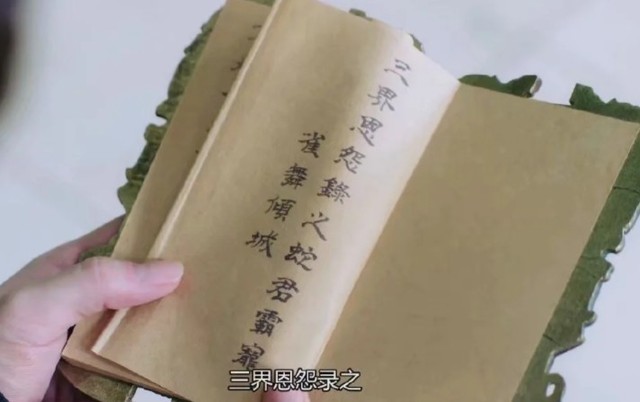 三界恩怨錄之蛇君霸寵
雀舞傾城
三界恩怨录之